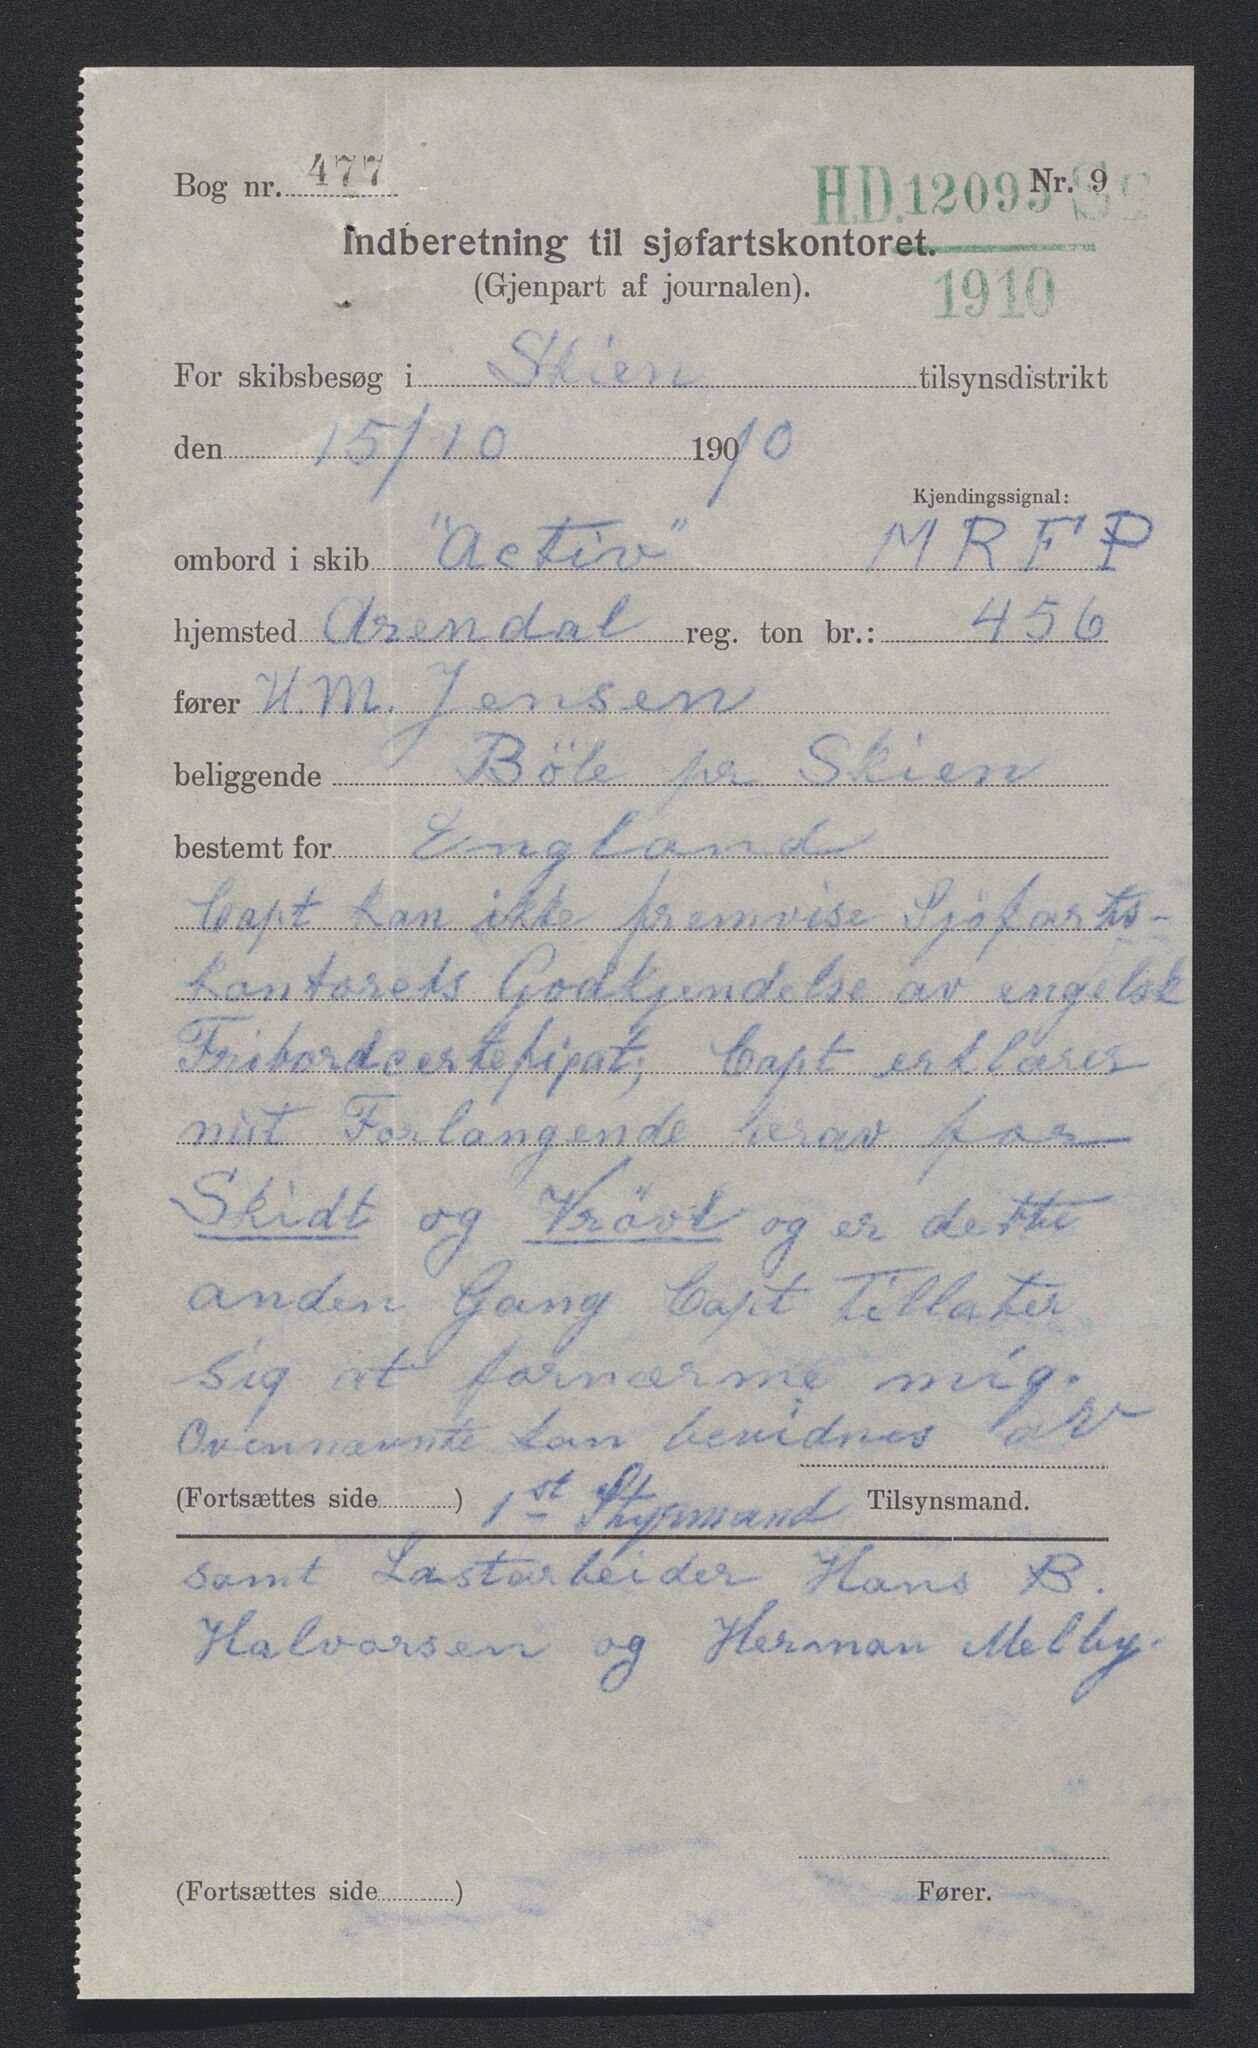 Bog nr. 477
H.D. 12095 Nr. 9
Indberetning til sjøfartskontoret.
1910
(Gjenpart af journalen).
For skibsbesøg i Skien tilsynsdistrikt
den 15/10 190/0
Kjendingssignal:
ombord i skib "Activ" M R F P
hjemsted Arendal reg. ton br.: 456
fører H. M. Jensen
beliggende Böle pr Skien
bestemt for England
Capt kan ikke fremvise Sjöfarts-
kontorets Godkjendelse av engelsk
Fribordcertefipat; Capt erklærer
mit Forlangende herav for
Skidt og Vrövl og er dette
anden Gang Capt tillater
sig at fornærme mig.
Ovennævnte kan bevidnes av
(Fortsættes side ) 1st Styrmand Tilsynsmand.
samt Lastarbeider Hans B.
Halvorsen og Herman Melby.
(Fortsættes side ) Fører.